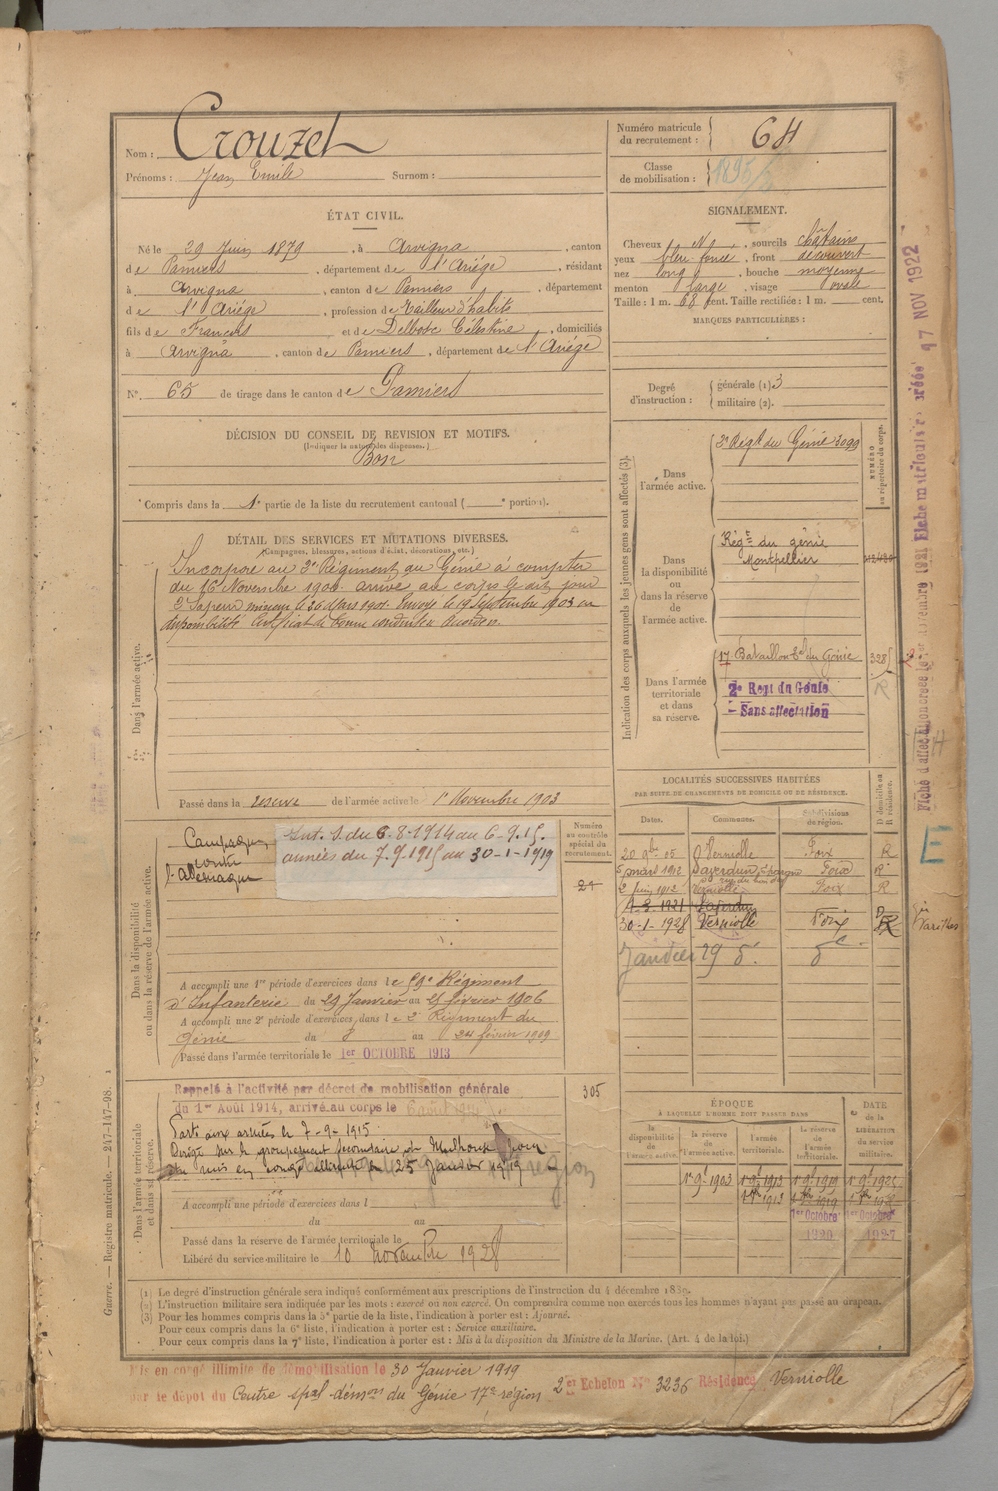 Nom : Crouzet
Prénoms : Jean Emile Surnom :
ÉTAT CIVIL.
Né le 29 Juin 1879, à Arvigna, canton
de Pamiers, département de l'Ariège, résidant
à Arvigna, canton de Pamiers, département
de l'Ariège, profession de Tailleur d'habits
fils de François et de Delbosc Célestine, domiciliés
à Arvigna, canton de Pamiers, département de l'Ariége
N°. 65 de tirage dans le canton de Pamiers
DÉCISION DU CONSEIL DE REVISION ET MOTIFS.
(Indiquer la nature des dispenses.)
Bon
Compris dans la 1e partie de la liste du recrutement cantonal ( e portion).
DÉTAIL DES SERVICES ET MUTATIONS DIVERSES.
(Campagnes, blessures, actions d'éclat, décorations, etc.)
Dans l'armée active.
Incorporé au 2e Régiment du Génie à compter
du 16 Novembre 1900. arrivé au corps le dit jour
2e Sapeur mineur le 30 Mars 1901. Envoyé le 19 Septembre 1903 en
disponibilité Certificat de bonne conduite accordé.
Passé dans la reserve de l'armée active le 1er Novembre 1903
Dans la disponibilité
ou dans la réserve de l'armée active.
Campagne
contre
l'allemagne
Int. S. du 6-8-1914 au 6-9-15.
armées du 7.9.1915 au 30-1-1919
Numéro
au contrôle
spécial du
recrutement.
21
A accompli une 1re période d'exercices dans le 59e Régiment
d'Infanterie du 29 Janvier au 25 février 1906
A accompli une 2e période d'exercices, dans le 2e Régiment du
Génie du 8 au 24 février 1909
Passé dans l'armée territoriale le 1er OCTOBRE 1913
Dans l'armée territoriale
et dans sa réserve.
Rappelé à l'activité par décret de mobilisation générale
du 1er Août 1914, arrivé au corps le 6 août 1914
305
Parti aux armées le 7-9-1915
Dirigé sur le groupement secondaire de Mulhouse pour
être mis en congé illimité le 25 Janvier 1919
région
A accompli une période d'exercices dans l
du au
Passé dans la réserve de l'armée territoriale le
Libéré du service militaire le 10 novembre 1928
Numéro matricule
du recrutement : 64
Classe
de mobilisation :
SIGNALEMENT.
Cheveux N, sourcils châtains
yeux bleu foncé, front découvert
nez long, bouche moyenne
menton large, visage ovale
Taille : 1 m. 68 cent. Taille rectifiée : 1 m. cent.
MARQUES PARTICULIÈRES :
Degré
d'instruction :
générale (1) 3
militaire (2).
Indication des corps auxquels les jeunes gens sont affectés (3).
NUMÉRO
au répertoire du corps.
Dans
l'armée active.
2e Régt du Génie 3099
Dans
la disponibilité
ou dans
la réserve
de
l'armée active.
Régt du génie
Montpellier
Dans l'armée
territoriale
et dans
sa réserve.
17 Bataillon Tal du Génie 3285
R
2e Regt du Génie
- Sans affectation
LOCALITÉS SUCCESSIVES HABITÉES
PAR SUITE DE CHANGEMENTS DE DOMICILE OU DE RÉSIDENCE.
Dates. Communes. Subdivisions de région. D domicile ou R résidence.
20 9bre 05 Verniolle Foix R
5 mars 1912 Saverdun Foix R
2 juin 1912 Verniolle Foix R
Saverdun
30-1-1928 Verniolle Foix R
Janvier 29
E
ÉPOQUE
À LAQUELLE L'HOMME DOIT PASSER DANS
DATE
de la
LIBÉRATION
du service
militaire.
la disponibilité de l'armée active. la réserve de l'armée active. l'armée territoriale. la réserve de l'armée territoriale.
1er 9bre 1903 1er 9bre 1913 1er 9bre 1919 1er 9bre 1925
1er Octobre 1er Octobre
1920 1927
Fiche matricule créée 17 NOV 1922
(1) Le degré d'instruction générale sera indiqué conformément aux prescriptions de l'instruction du 4 décembre 1889.
(2) L'instruction militaire sera indiquée par les mots : exercé ou non exercé. On comprendra comme non exercés tous les hommes n'ayant pas passé au drapeau.
(3) Pour les hommes compris dans la 5e partie de la liste, l'indication à porter est : Ajourné.
Pour ceux compris dans la 6e liste, l'indication à porter est : Service auxiliaire.
Pour ceux compris dans la 7e liste, l'indication à porter est : Mis à la disposition du Ministre de la Marine. (Art. 4 de la loi.)
Guerre. — Registre matricule. — 247-147-98.
Mis en congé illimité de démobilisation le 30 Janvier 1919
par le dépôt du Centre spal démon du Génie 17e région 2e Echelon No 3236 Résidence Verniolle